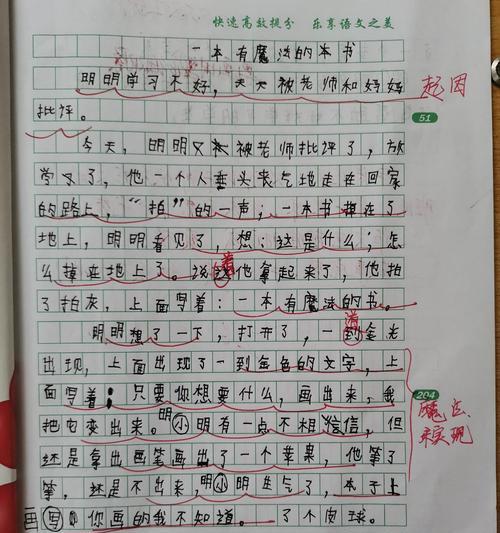 快速高效提分 乐享语文之美
一本有魔法的本书
明明学习不好，天天被老师和妈妈
起因
批评。
51
今天，明明又被老师批评了，放
学了，他一个人垂头丧气地走在回家
的路上，“拍”的一声；一本书掉在了
地上，明明看见了，想：这是什么；怎
么掉在地上了。说着他拿起来了，他拍
了拍灰，上面写着：一本有魔法的书。
明明想了一下，打开了，一道金光
出现，上面出现了一到金色的文字，上
面写着；只要你想要什么，画出来，我
204
把它变出来。明小明有一点不相信，但
来实现
还是拿出画笔画出了一个苹果，他等了
等，还是不出来，明小明生气了，本子上
画写你画的我不知道。了个皮球。